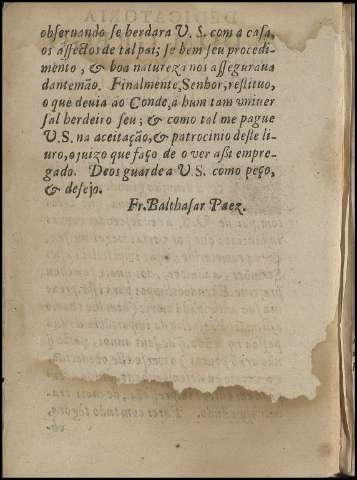 obseruando se herdara V. S. com a casa,
os affectos de tal pai; se bem seu procedi-
mento, & boa natureza nos asseguraua
dantemão. Finalmente, Senhor, restituo,
o que deuia ao Conde, a hum tam vniuer
sal herdeiro seu; & como tal me pague
V. S. na aceitação, & patrocinio deste li-
uro, o juizo que faço de o ver assi empre-
gado. Deos guarde a V. S. como peço,
& desejo.
Fr. Balthasar Paez.